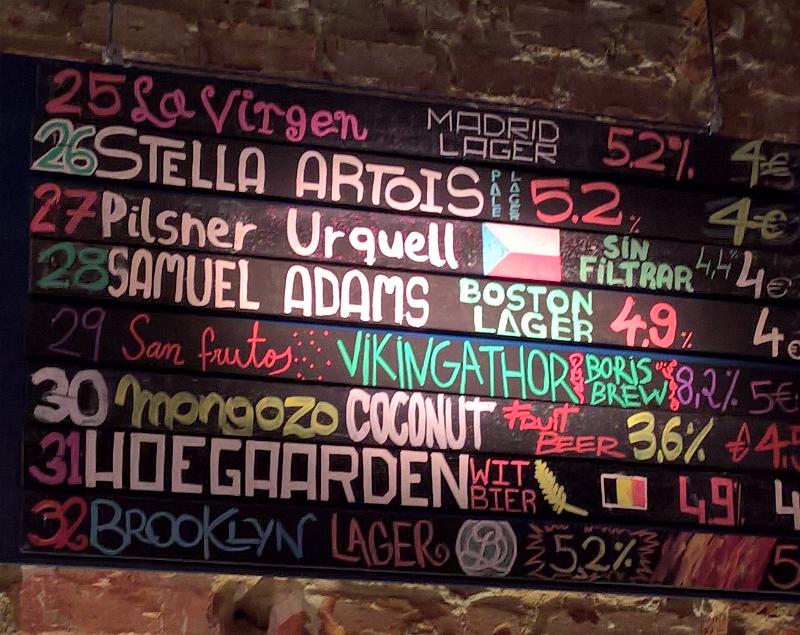 25 La Virgen MADRID LAGER 5.2% 4€
26 STELLA ARTOIS PALE LAGER 5.2% 4€
27 Pilsner Urquell SIN FILTRAR 4,4% 4€
28 SAMUEL ADAMS BOSTON LAGER 4.9% 4€
29 San frutos VIKINGATHOR BORIS BREW 8,2% 5€
30 mongozo COCONUT FRUIT BEER 3,6% 4,5
31 HOEGAARDEN WIT BIER 4,9% 4
32 BROOKLYN LAGER B 5.2% 5